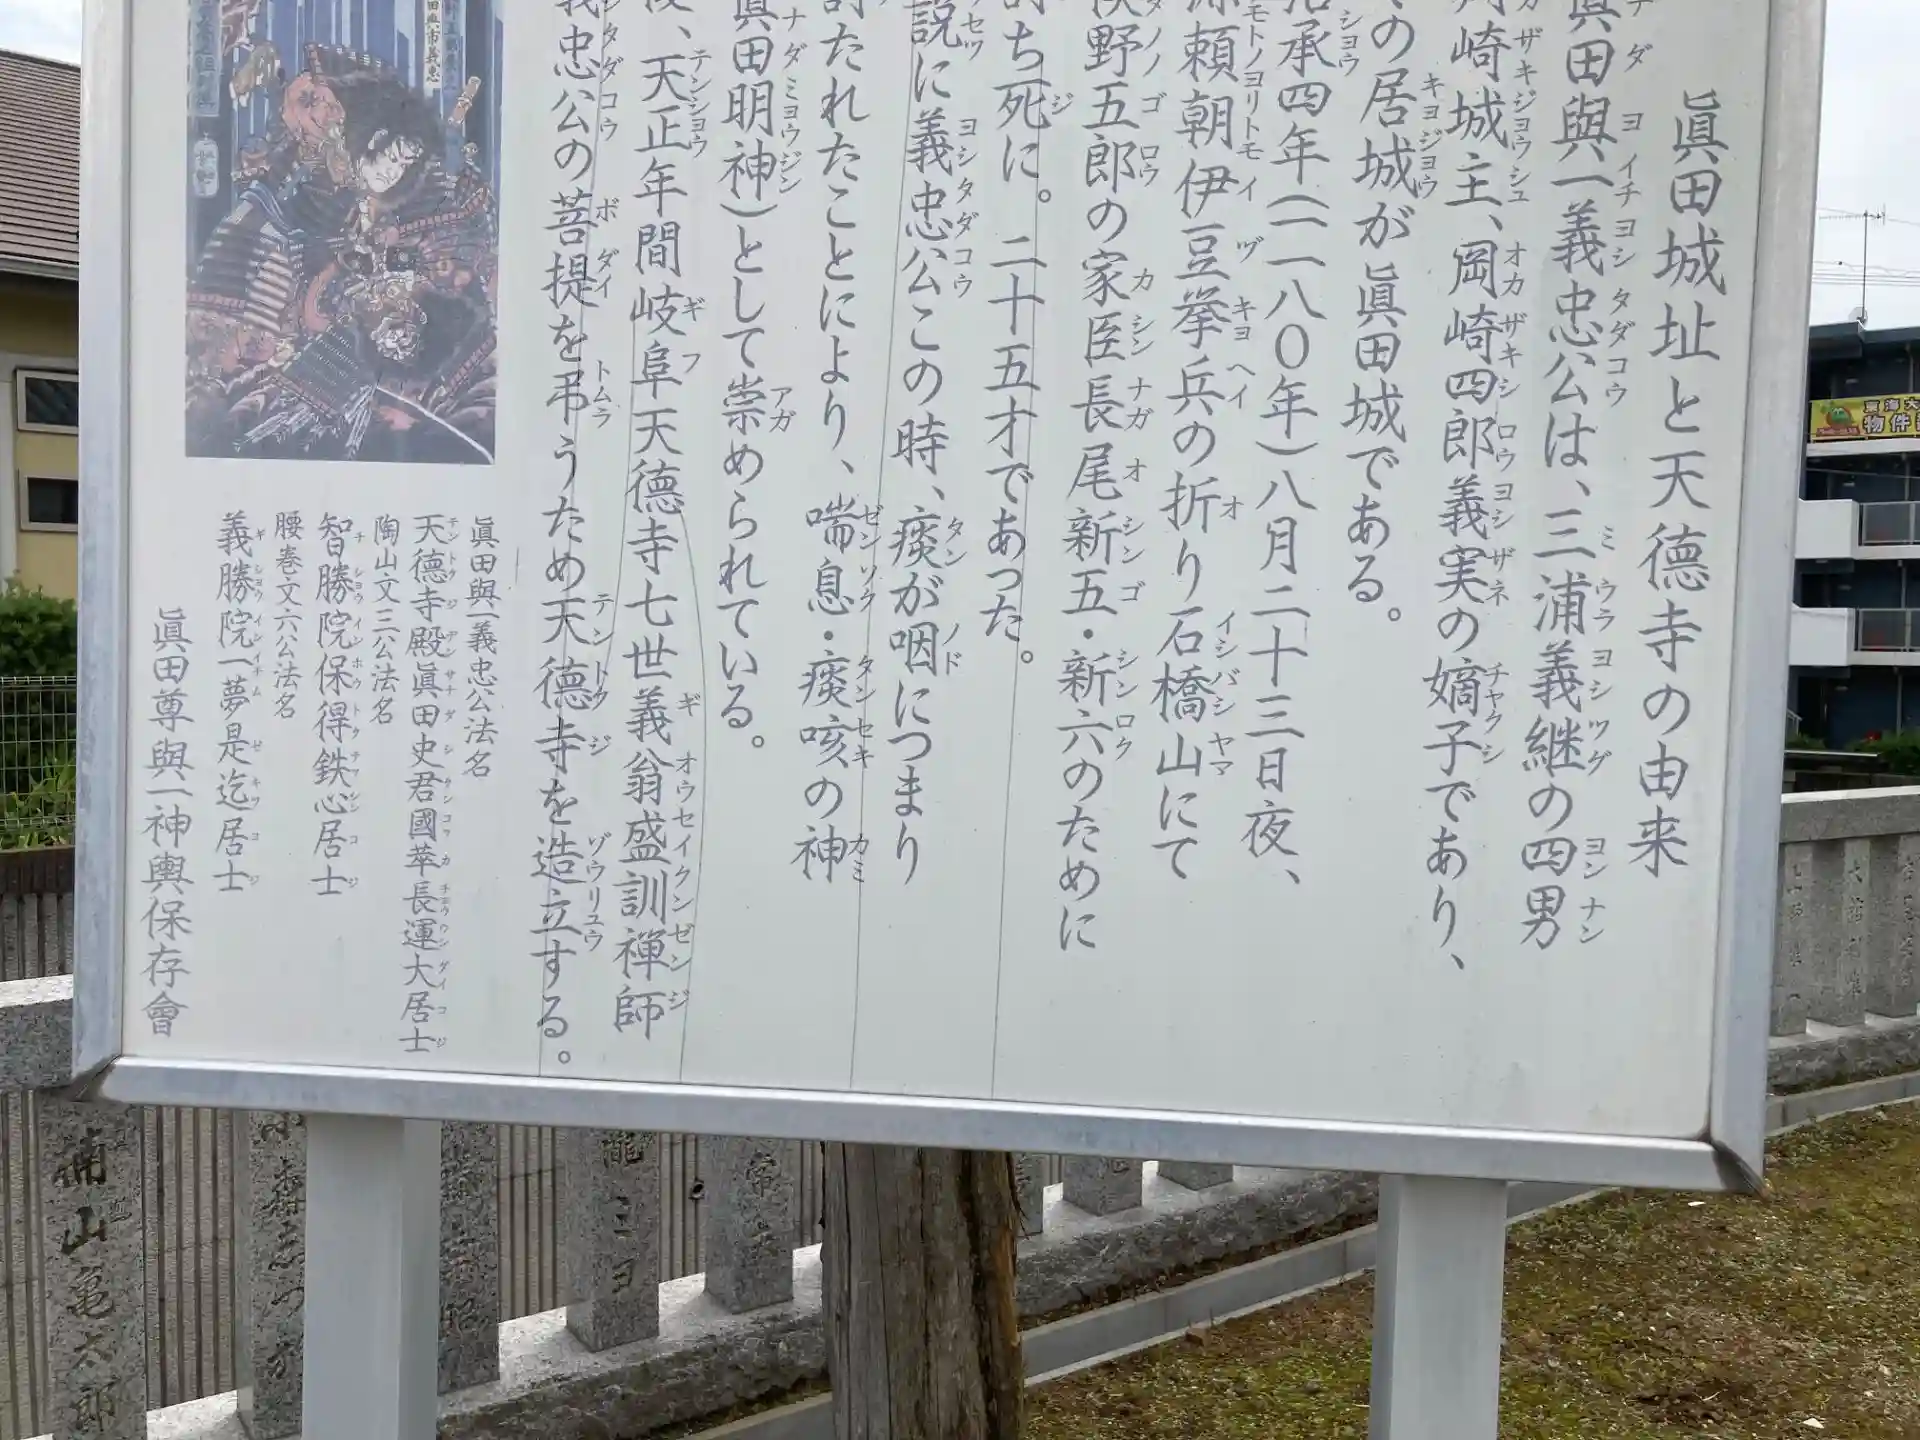 眞田城址と天徳寺の由来
眞田與一義忠公は、三浦義継の四男
崎城主、岡崎四郎義実の嫡子であり、
の居城が眞田城である。
承四年(一一八〇年)八月二十三日夜、
頼朝伊豆挙兵の折り石橋山にて
野五郎の家臣長尾新五・新六のために
ち死に。二十五才であった。
説に義忠公この時、痰が咽につまり
たれたことにより、喘息・痰咳の神
眞田明神)として崇められている。
、天正年間岐阜天徳寺七世義翁盛訓禅師
義忠公の菩提を弔うため天徳寺を造立する。
眞田與一義忠公法名
天徳寺殿眞田史君國萃長運大居士
陶山文三公法名
智勝院保得鉄心居士
腰巻文六公法名
義勝院一夢是迄居士
眞田尊與一神輿保存會
東海大
物件
山亀太郎